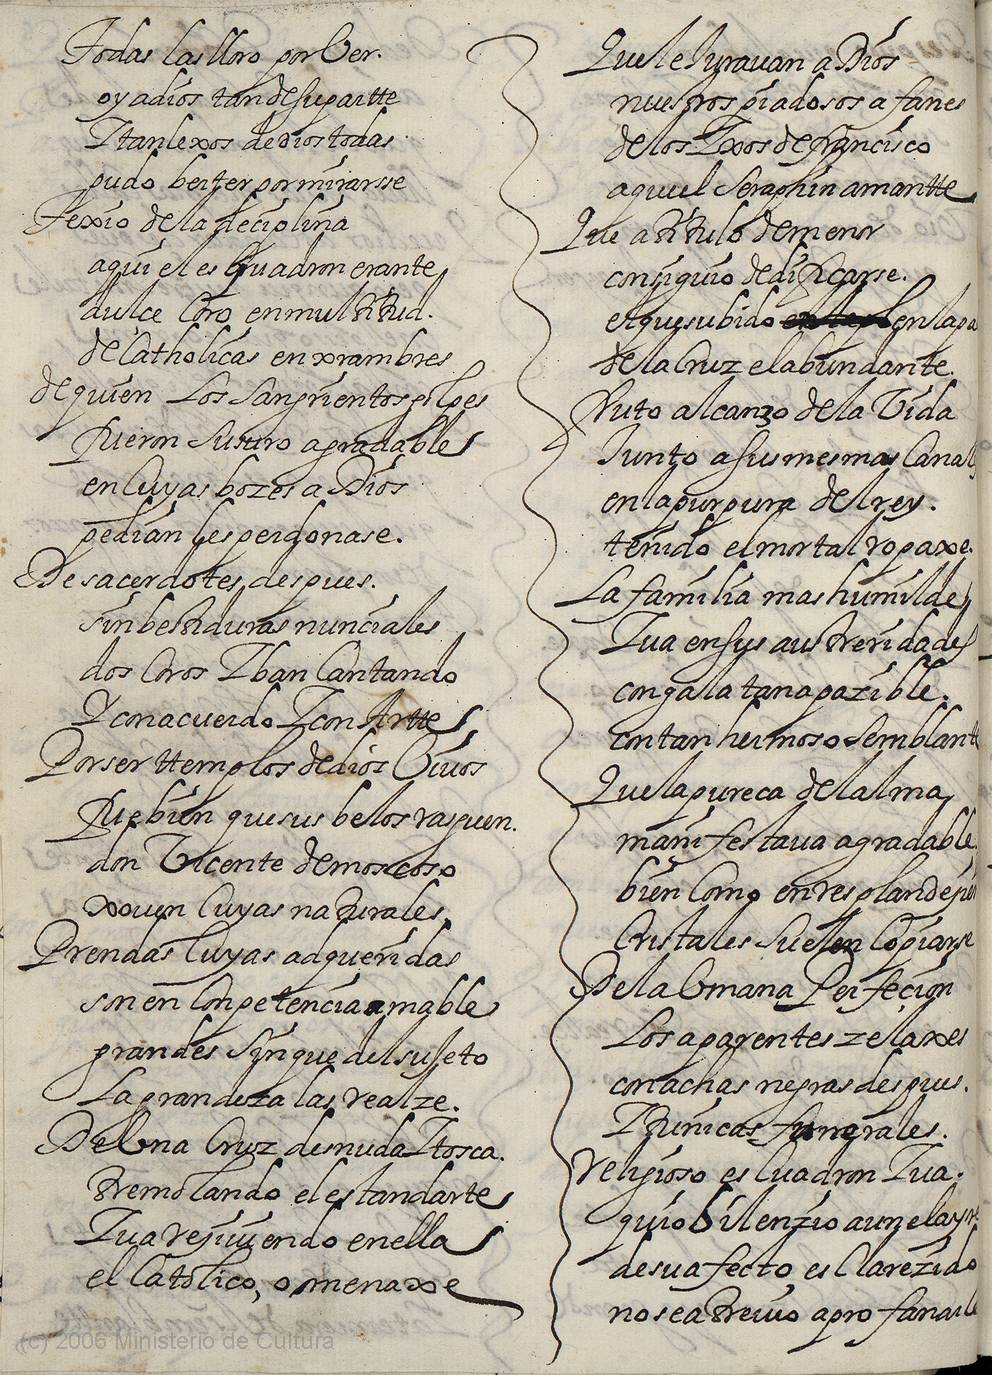 Todas las lloro por Ver.
oy adios tan de su partte
Y tan lexos de Dios todas
pudo berter por mirarsse
Texio de la deciplina
aqui el esquadron erante
dulce Coro en multitud.
de Catholicas enxrambres
de quien Los Sangrientos golpes
fueron Suturo agradable
en Cuyas bozes a Dios
pedian les perdonase.
De sacerdotes despues.
sin bestiduras nunciales
dos Coros Yban Cantando
Y con acuerdo Y con Artte
Por ser ttemplos de dios Vivos
fue bien que sus belos rasguen.
don Vicente de moscoso
xoven Cuyas naturales
Prendas Cuyas adqueridas
son en Conpetencia amable
grandes Sin que del sujeto
La grandeza las realze.
De Vna Cruz desnuda Y tosca.
tremolando el estandarte
Yua rejuyendo en ella
el Catolico, omenaxe
Que le Jurauan a Dios
nuestros piadosos afanes
de los Yxos de francisco
aquel Seraphin amantte
Que a titulo de menor
consiguio dedificarse.
el que subido en la pa
de la Cruz el abundante.
fruto alcanzo de la Vida
Junto a sus mesmas Canal
en la purpura del rey.
teñido el mortal ropaxe.
La familia mas humilde
Yua en sus austeridades
con gala tan apazible.
con tan hermoso Semblant
Que la pureca del alma
manifestaua agradable.
bien Como en resplandeci
Cristales Suelen Copiarse
De la Vmana Perfecion
Los aparentes zelaxes
con achas negras despues.
Y tunicas funerales.
religioso esCuadron Yua.
quio Silenzio aun el ayre
de su afecto, esClarezido
no se atreuio a profanarle